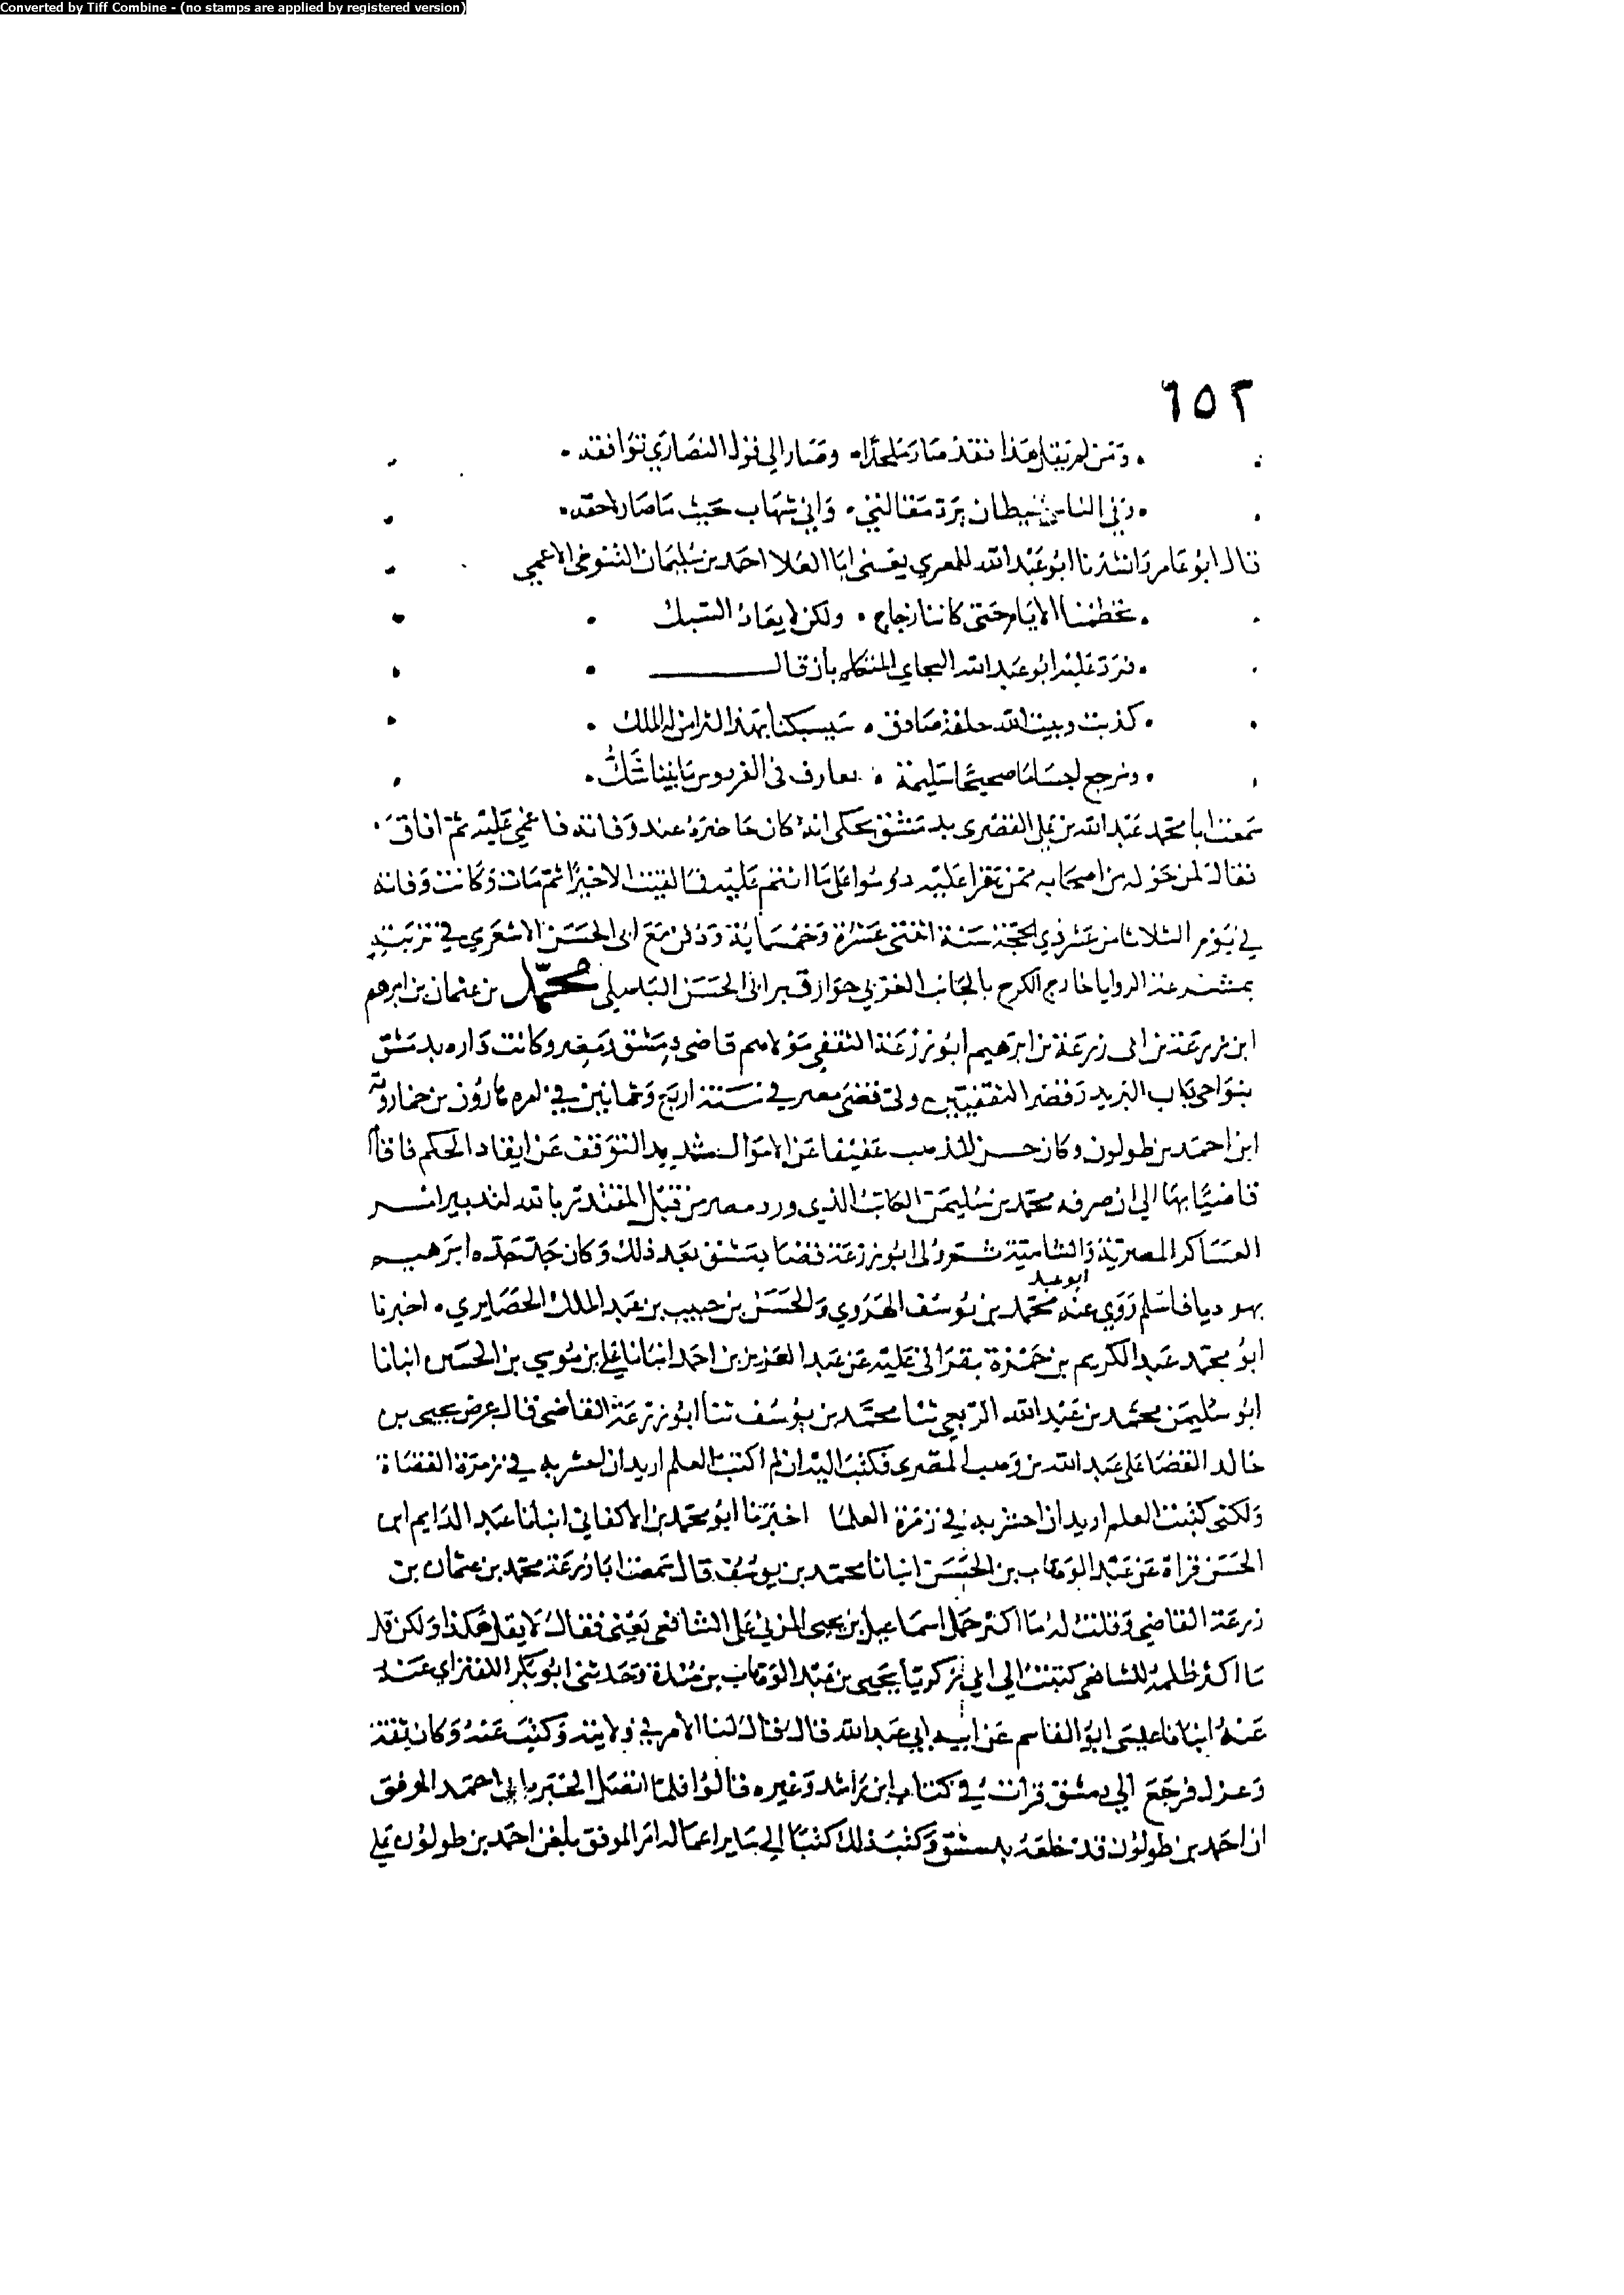 Converted by Tiff Combine - (no stamps are applied by registered version)
٦٥٢
ومن لم يقل هذا فقد صار ملحدا وصار الى قول النصارى توافقه
وفي الناس شيطان يرد مقالتي واني شهاب حيث ما صار لاحقه
قال ابو عامر وانشدنا ابو عبد الله للمعري يعني ابا العلا احمد بن سليمان التنوخي الاعمى
تحطمنا الايام حتى كاننا زجاج ولكن لا يعاد السبك
فرد عليه ابو عبد الله البجاي المتكلم بان قال
كذبت وبيت الله حلفة صادق سيسبكنا بعد الثرى من له الملك
ونرجع اجساما صحيحا سليمة تعارف في الفردوس ما بيننا شك
سمعت ابا محمد عبد الله بن علي القصري بدمشق يحكي انه كان حاضره عند وفاته فاغمي عليه ثم افاق
فقال لمن حوله من اصحابه ممن يقرا عليه دوموا على ما انتم عليه فما لقيت الا خيرا ثم مات وكانت وفاته
في يوم الثلاثا من عشر ذي الحجة سنة اثنتي عشرة وخمسماية ودفن مع ابي الحسن الاشعري في تربته
بمشرعة الروايا خارج الكرخ بالجانب الغربي جوار قبر ابي الحسن الباهلي محمد بن عثمان بن ابرهيم
ابن زرعة بن ابي زرعة بن ابرهيم ابو زرعة الثقفي مولاهم قاضي دمشق ومصر وكانت داره بدمشق
بنواحي باب البريد وقصر الثقفيين ولي قضى مصر في سنة اربع وثمانين في امره هارون بن خمارويه
ابن احمد بن طولون وكان حسن المذهب عفيفا عن الاموال شديد التوقف عن انفاد الحكم فاقام
قاضيا بها الى ان صرفه محمد بن سليمن الكاتب الذي ورد مصر من قبل المقتدر بالله لتدبير امر
العساكر المصرية والشامية ثم ولى ابو زرعة قضا دمشق بعد ذلك وكان جد جده ابرهيم
يهوديا فاسلم روي عنه ابو عبد محمد بن يوسف الهروي والحسن بن حبيب بن عبد الملك الحصايري اخبرنا
ابو محمد عبد الكريم بن حمزة بقراتي عليه عن عبد العزيز بن احمد انبانا علي بن موسى بن الحسين انبانا
ابو سليمن محمد بن عبد الله الربعي ثنا محمد بن يوسف ثنا ابو زرعة القاضي قال عرض يحيى بن
خالد القضا على عبد الله بن وهب المصري فكتب اليه اني لم اكتب العلم اريد ان احشر به في زمرة القضاة
ولكني كتبت العلم اريد ان احشر به في زمرة العلما اخبرنا ابو محمد بن الاكفاني انبانا عبد الدايم ابن
الحسن قراة عن عبد الوهاب بن الحسن انبانا محمد بن يوسف قال سمعت ابا زرعة محمد بن عثمان بن
زرعة القاضي وقلت له ما اكثر حمل اسماعيل بن يحيى المزني على الشافعي يعني فقال لا يقل هكذا ولكن قل
ما اكثر ظلمه للشافعي كتبت الى ابي زكريا يحيى بن عبد الوهاب بن مندة وحدثني ابو بكر اللفتواي عنه
عنه انبانا عمي ابو القاسم عن ابيه ابي عبد الله قال قال لنا الامر في ولايته وكتبت عنه وكان ثقة
وعزل فرجع الى دمشق قرات في كتاب ابن راشد وغيره قالوا فلما اتصل الخبر بابي احمد الموفق
ان احمد بن طولون قد خلعه بدمشق وكتب بذلك كتبا الى ساير اعماله امر الموفق بلعن احمد بن طولون على